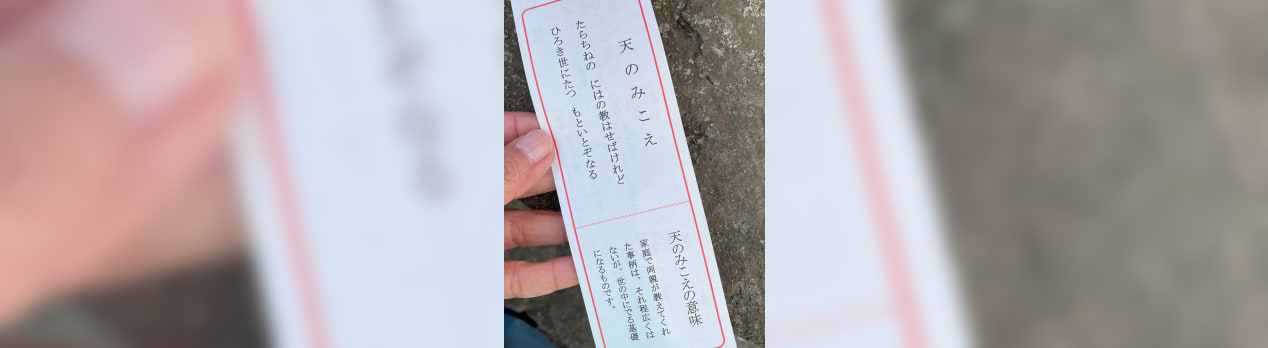 天のみこえ
たらちねの にはの教はせばけれど
ひろき世にたつ もといとぞなる
天のみこえの意味
家庭で両親が教えてくれ
た事柄は、それ程広くは
ないが、世の中にでる基礎
になるものです。